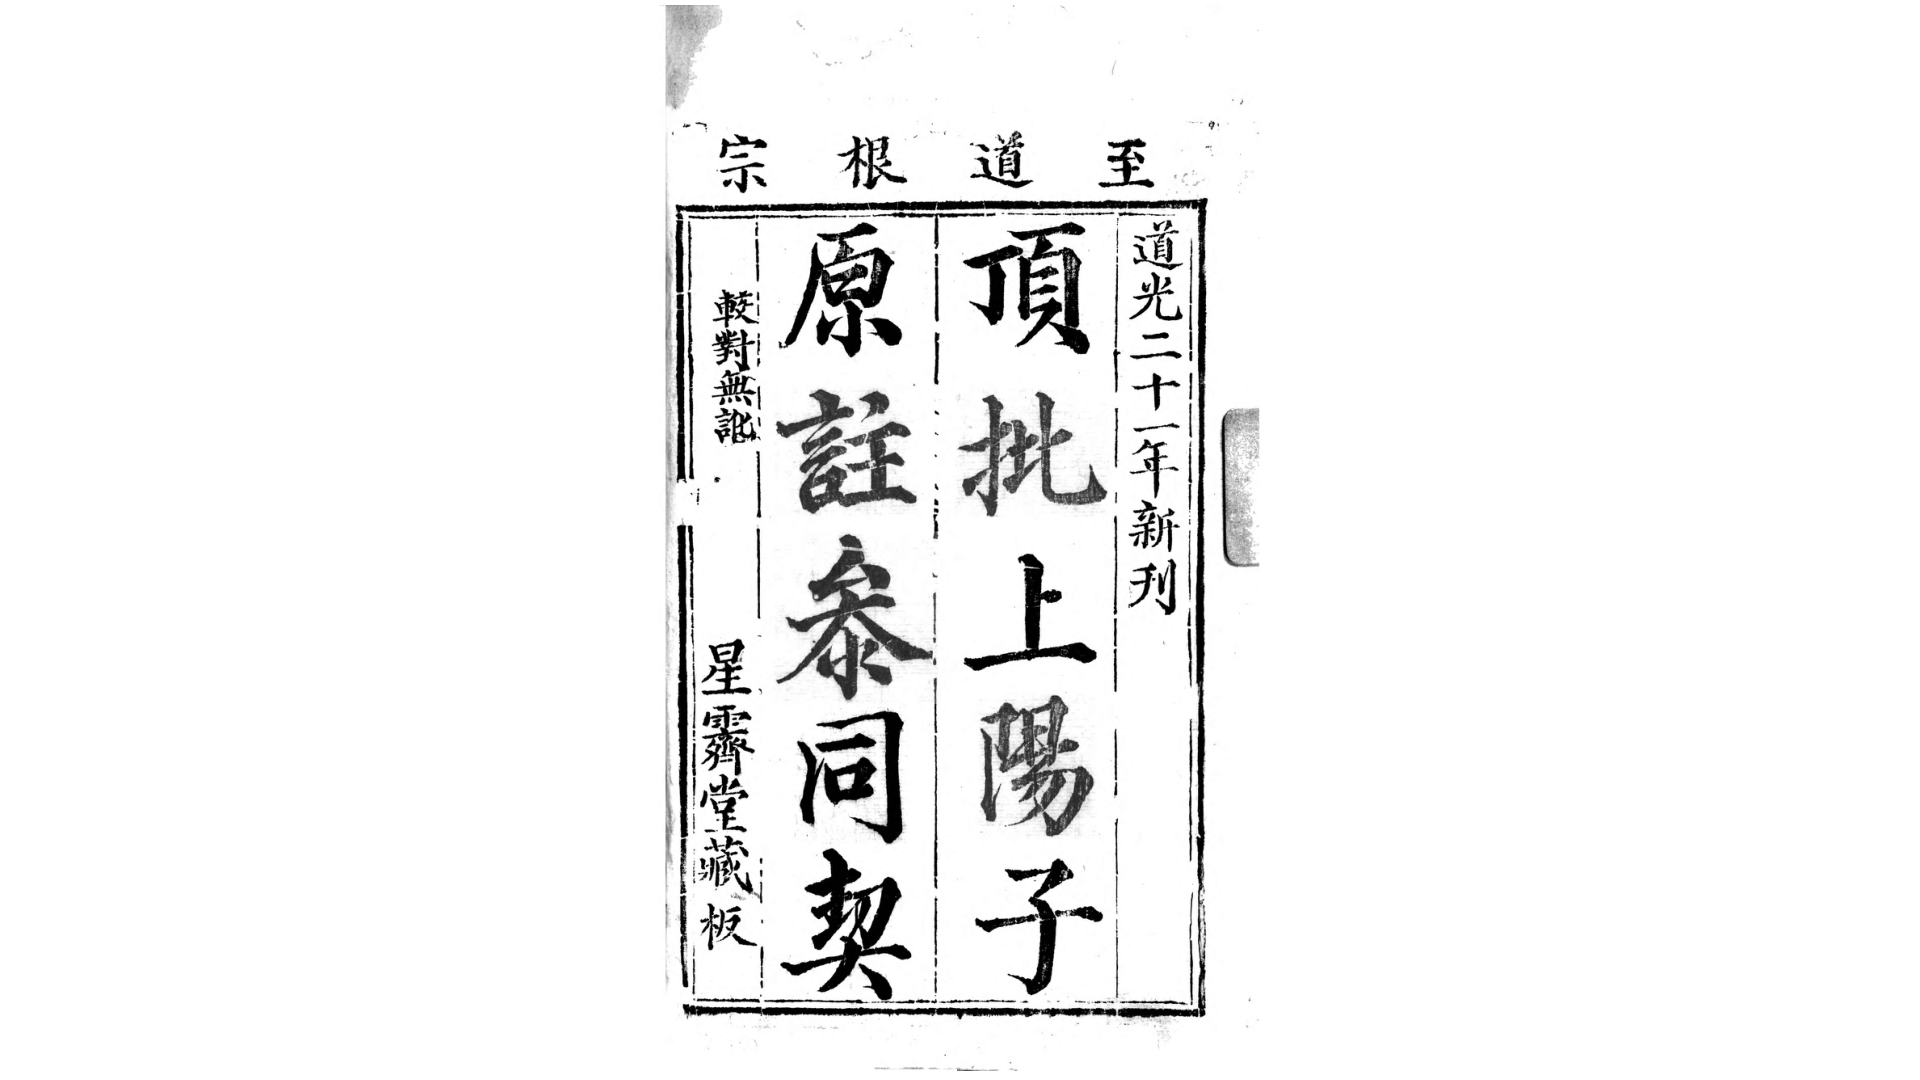 至道根宗
道光二十一年新刊
頂批上陽子
原註參同契
較對無訛
星霽堂藏板